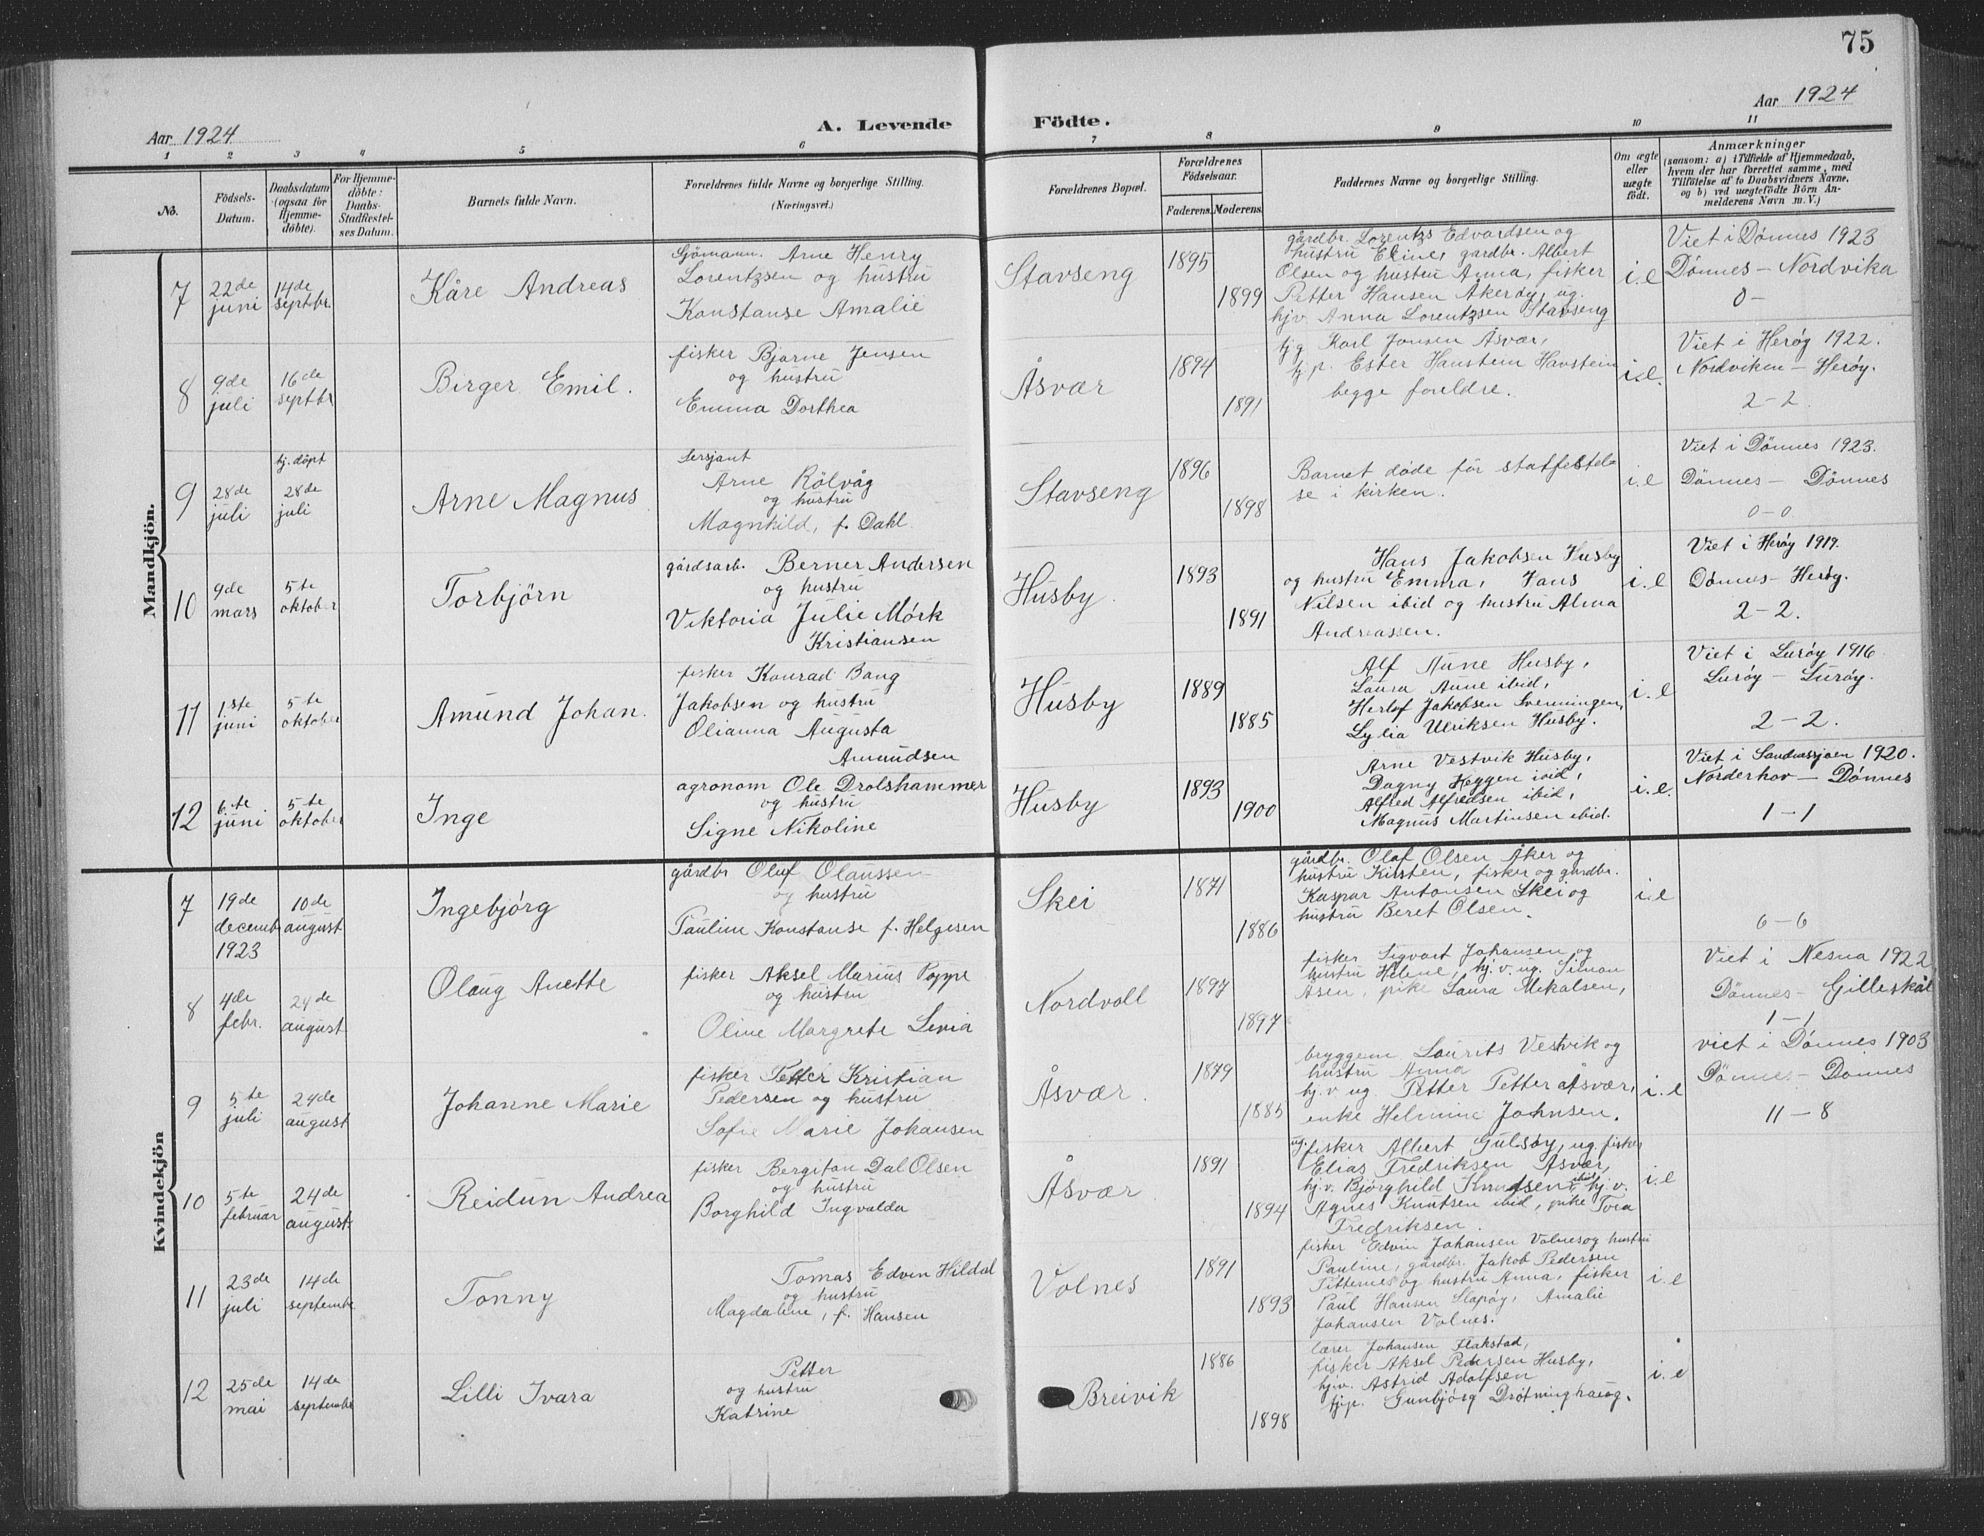 75
Aar 1924
A. Levende Födte.
Aar 1924
1 2 3 4 5 6 7 8 9 10 11
No.
Födsels-
Datum.
Daabsdatum
(ogsaa for
Hjemme-
döbte).
For Hjemme-
döbte:
Daabs-
Stadfæstel-
ses Datum.
Barnets fulde Navn.
Forældrenes fulde Navne og borgerlige Stilling.
(Næringsvei.)
Forældrenes Bopæl.
Forældrenes
Födselsaar.
Faderens. Moderens.
Faddernes Navne og borgerlige Stilling.
Om ægte
eller
uægte
födt.
Anmærkninger
(saasom: a) i Tilfælde af Hjemmedaab,
hvem der har forrettet samme, med
Tilföielse af to Daabsvidners Navne,
og b) ved uægtefödte Börn An-
melderens Navn m. V.)
Mandkjön.
7
22de
juni
14de
septbr.
Kåre Andreas
Sjömann. Arne Henry
Lorentzsen og hustru
Konstanse Amalie
Stavseng
1895
1899
gårdbr. Lorentz Edvardsen og
hustru Eline, gårdbr. Albert
Olsen og hustru Anna, fisker
Petter Hansen Åkerøy, ug.
hjv. Anna Lorentzsen Stavseng
i.e
Viet i Dønnes 1923
Dønnes - Nordvika
0-
8
9de
juli
16de
septbr
Birger Emil.
fisker Bjarne Jensen
og hustru
Emma Dorthea
Åsvær
1894
1891
Karl Jonsen Åsvær,
hj.p. Ester Hanstein Havstein
begge foreldre.
i.e.
Viet i Herøy 1922.
Nordviken - Herøy.
2-2
9
28de
juli
hj. döpt
28de
juli
Arne Magnus
Sersjant
Arne Rölvåg
og hustru
Magnhild, f. Dahl.
Stavseng
1896
1898
Barnet døde för staffestel-
se i kirken.
i.e
Viet i Dönnes 1923.
Dønnes - Dönnes
0-0
10
9de
mars
5te
oktober
Torbjörn
gårdsarb. Berner Andersen
og hustru
Viktoria Julie Mörk
Kristiansen
Husby.
1893
1891
Hans Jakobsen Husby
og hustru Emma, Hans
Nilsen ibid og hustru Alma
Andreassen.
i.e
Viet i Herøy 1919.
Dønnes - Herøy.
2-2.
11
1ste
juni
5te
oktober
Amund Johan.
fisker Konrad Bang
Jakobsen og hustru
Olianna Augusta
Amundsen
Husby
1889
1885
Alf Aune Husby,
Laura Aune ibid,
Herlof Jakobsen Svenningen,
Lylia Ulriksen Husby.
i.e
Viet i Lurøy 1916.
Lurøy - Lurøy.
2-2.
12
6.te
juni
5te
oktober
Inge
agronom Ole Drolshammer
og hustru
Signe Nikoline
Husby
1893
1900
Arne Vestvik Husby,
Dagny Heggen ibid,
Alfred Alfredsen ibid,
Magnus Martinsen ibid.
i.e.
Viet i Sandnessjøen 1920.
Norderhov - Dønnes
1-1
Kvindekjön
7
19de
decemb
1923
10de
august
Ingebjörg
gårdbr Oluf Olaussen
og hustru
Pauline Konstanse f. Helgesen
Skei
1871
1886
gårdbr. Olaf Olsen Åker og
hustru Kirsten, fisker og gårdbr.
Kaspar Antonsen Skei og
hustru Beret Olsen.
i.e
6-6
8
4de
febr.
24de
august
Olaug Anette
fisker Aksel Marius Poppe
og hustru
Oline Margrete Livia
Nordvoll
1897
1897
fisker Sigvart Johansen og
hustru Helene, hj.v. ug. Simon
Åsen, pike Laura Mikalsen,
Viet i Nesna 1922
Dønnes - Gilleskål
1-1
9
5te
juli
24de
august
Johanne Marie
fisker Petter Kristian
Pedersen og hustru
Sofie Marie Johansen
Åsvær.
1879
1885
bryggem. Laurits Vestvik og
hustru Anna
hj.v ug. Petter Petter Åsvær,
enke Helmine Johnsen.
i.e
viet i Dønnes 1903
Dønnes - Dønnes
11-8
10
5te
februar
24de
august.
Reidun Andrea
fisker Bergitan Dal Olsen
og hustru
Borghild Ingvalda
Åsvær
1891
1894
ug. fisker Albert Gulsöy, ug fisker
Elias Fredriksen Åsvær,
hj.v. Bjørghild Knudsen ibid, hj.v.
Agnes Knutsen ibid, pike Tora
Fredriksen.
i.e
11
23de
juli
14de
septembr
Tonny
Tomas Edvin Hildal
og hustru
Magdalene, f. Hansen
Volnes
1891
1893
fisker Edvin Johansen Volnes og hustru
Pauline, gårdbr. Jakob Pedersen
Titternes og hustru Anna, fisker
Paul Hansen Slapøy, Amalie
Johansen Volnes.
i.e
12
25de
mai
14de
septembr
Lilli Ivara
Petter
og hustru
Katrine
Breivik
1886
1898
lærer Johansen Flakstad,
fisker Aksel Pedersen Husby,
hjv. Astrid Adolfsen
hjp. Gunbjörg Drotninghaug.
i.e